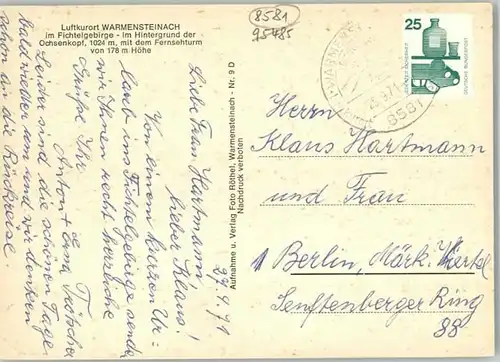 Luftkurort WARMENSTEINACH
im Fichtelgebirge - Im Hintergrund der
Ochsenkopf, 1024 m, mit dem Fernsehturm
von 178 m Höhe
8581
95485
27.9.71
Liebe Frau Hartmann
lieber Klaus!
Von einem kurzen Ur-
laub im Fichtelgebirge senden
wir Ihnen recht herzliche
Grüße Ihr
Anton + Erna
Leider sind die schönen Tage
bald wieder um und wir denken
schon an die Rückreise.
Aufnahme u. Verlag Foto Röthel, Warmensteinach - Nr. 9 D
Nachdruck verboten
8581
25
DEUTSCHE BUNDESPOST
Herrn
Klaus Hartmann
und Frau
1 Berlin, Märk. Viertel
Senftenberger Ring
88